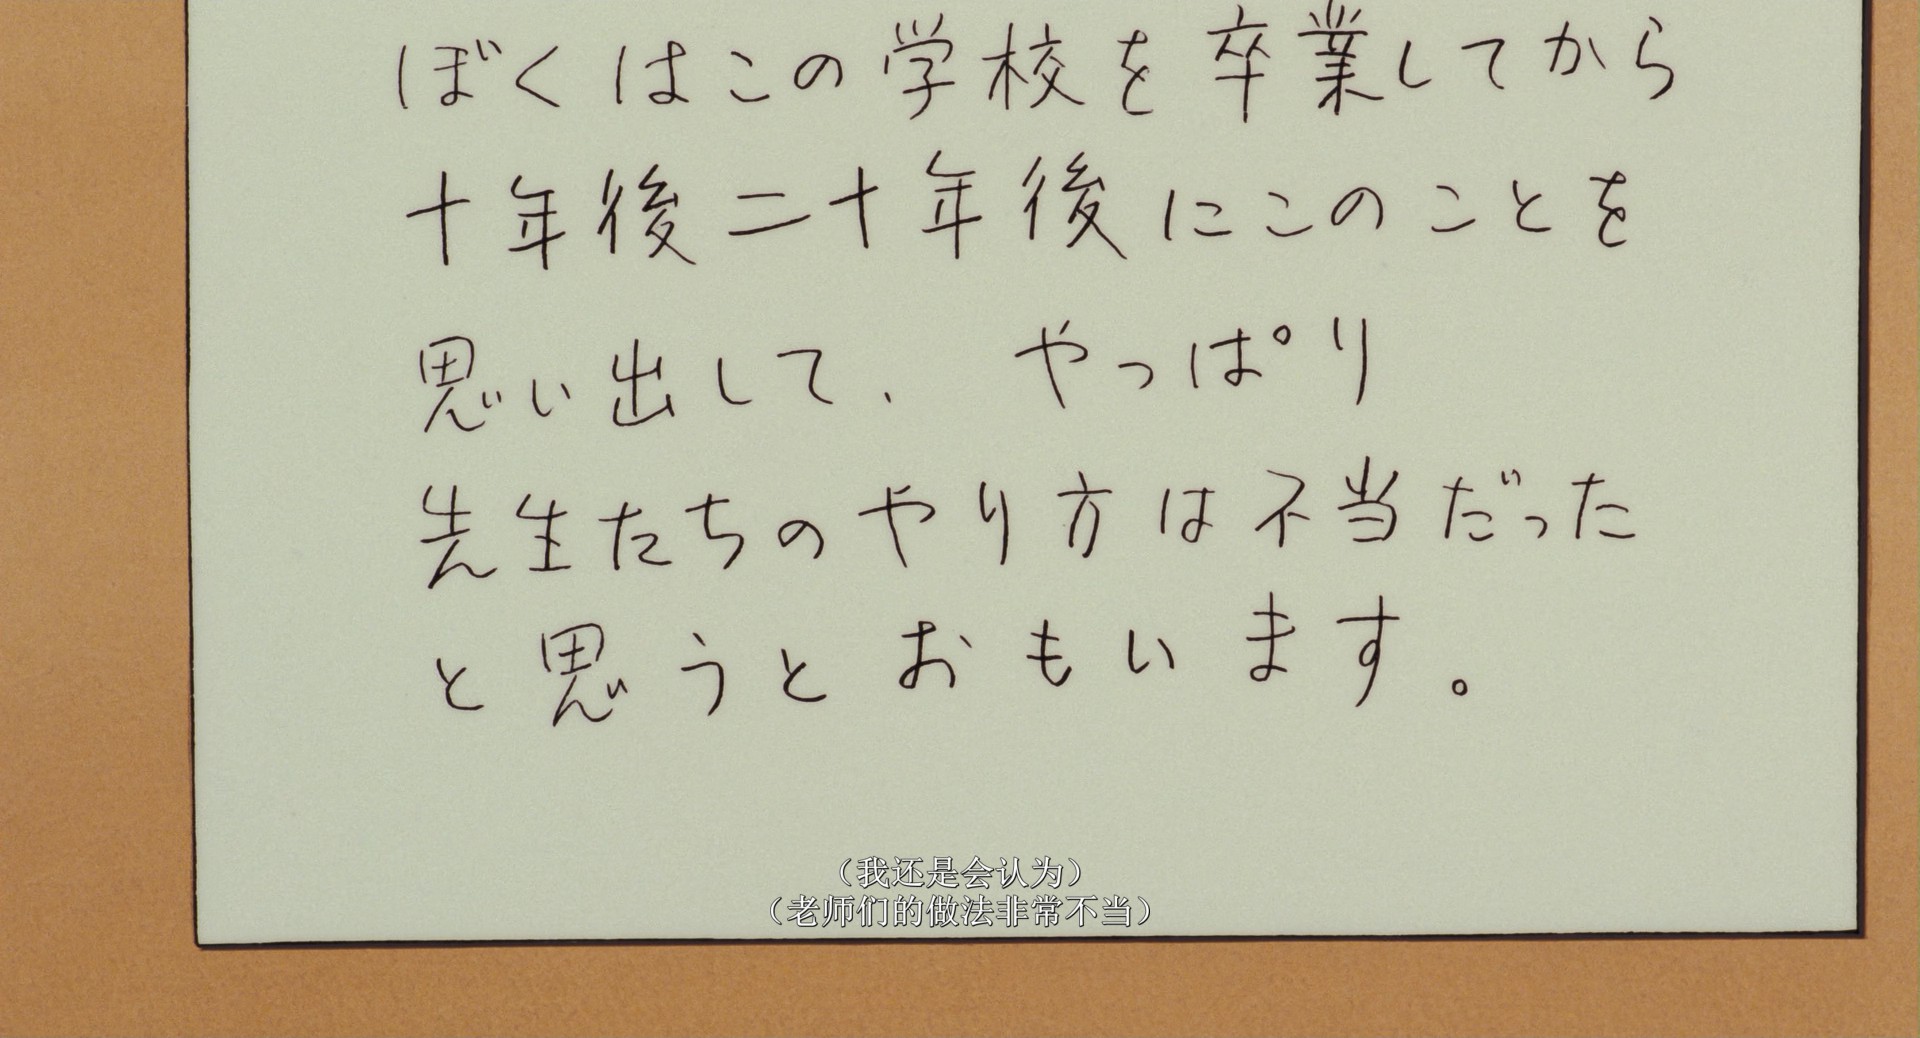 ぼくはこの学校を卒業してから
十年後二十年後にこのことを
思い出して、 やっぱり
先生たちのやり方は不当だった
と思うとおもいます。
（我还是会认为）
（老师们的做法非常不当）